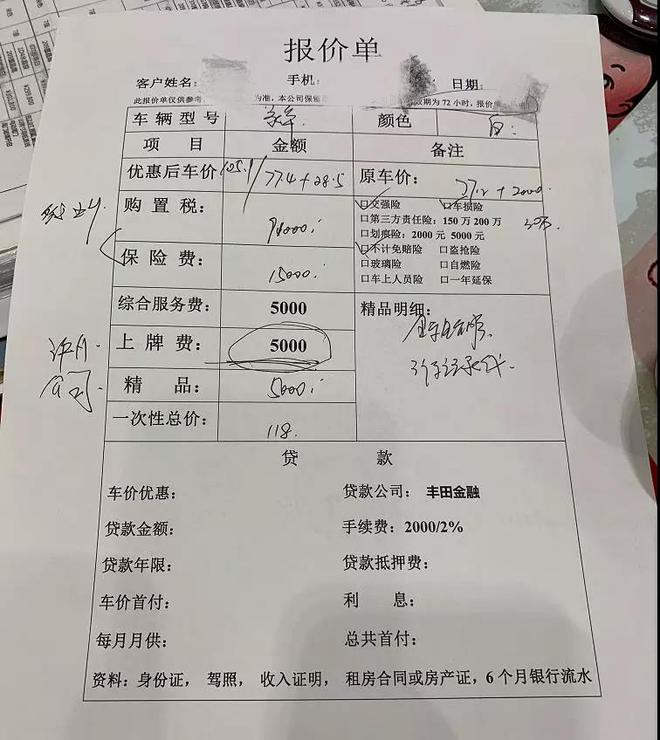 报价单
客户姓名： 手机： 日期：
此报价单仅供参考 为准，本公司保留 效期为 72 小时，报价
车辆型号 颜色 白
项 目 金额 备注
优惠后车价 105.1/77.4+28.5 原车价：
购置税： 94000
保险费： 15000
□交强险 □车损险
□第三方责任险：150 万 200 万 300万
□划痕险：2000 元 5000 元
□不计免赔险 □盗抢险
□玻璃险 □自燃险
□车上人员险 □一年延保
综合服务费： 5000 精品明细：
上牌费： 5000
公司
精 品： 5000
一次性总价： 118.
贷 款
车价优惠： 贷款公司： 丰田金融
贷款金额： 手续费：2000/2%
贷款年限： 贷款抵押费：
车价首付： 利 息：
每月月供： 总共首付：
资料：身份证， 驾照， 收入证明， 租房合同或房产证，6 个月银行流水